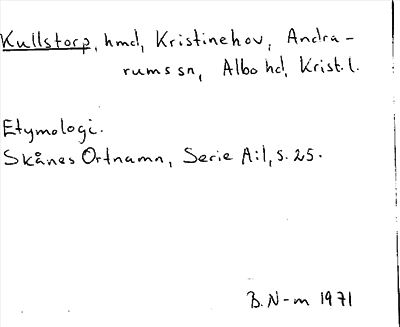 Kullstorp, hmd, Kristinehov, Andra-
rums sn, Albo hd, Krist. l.
Etymologi.
Skånes Ortnamn, Serie A:1, s. 25.
B. N-m 1971